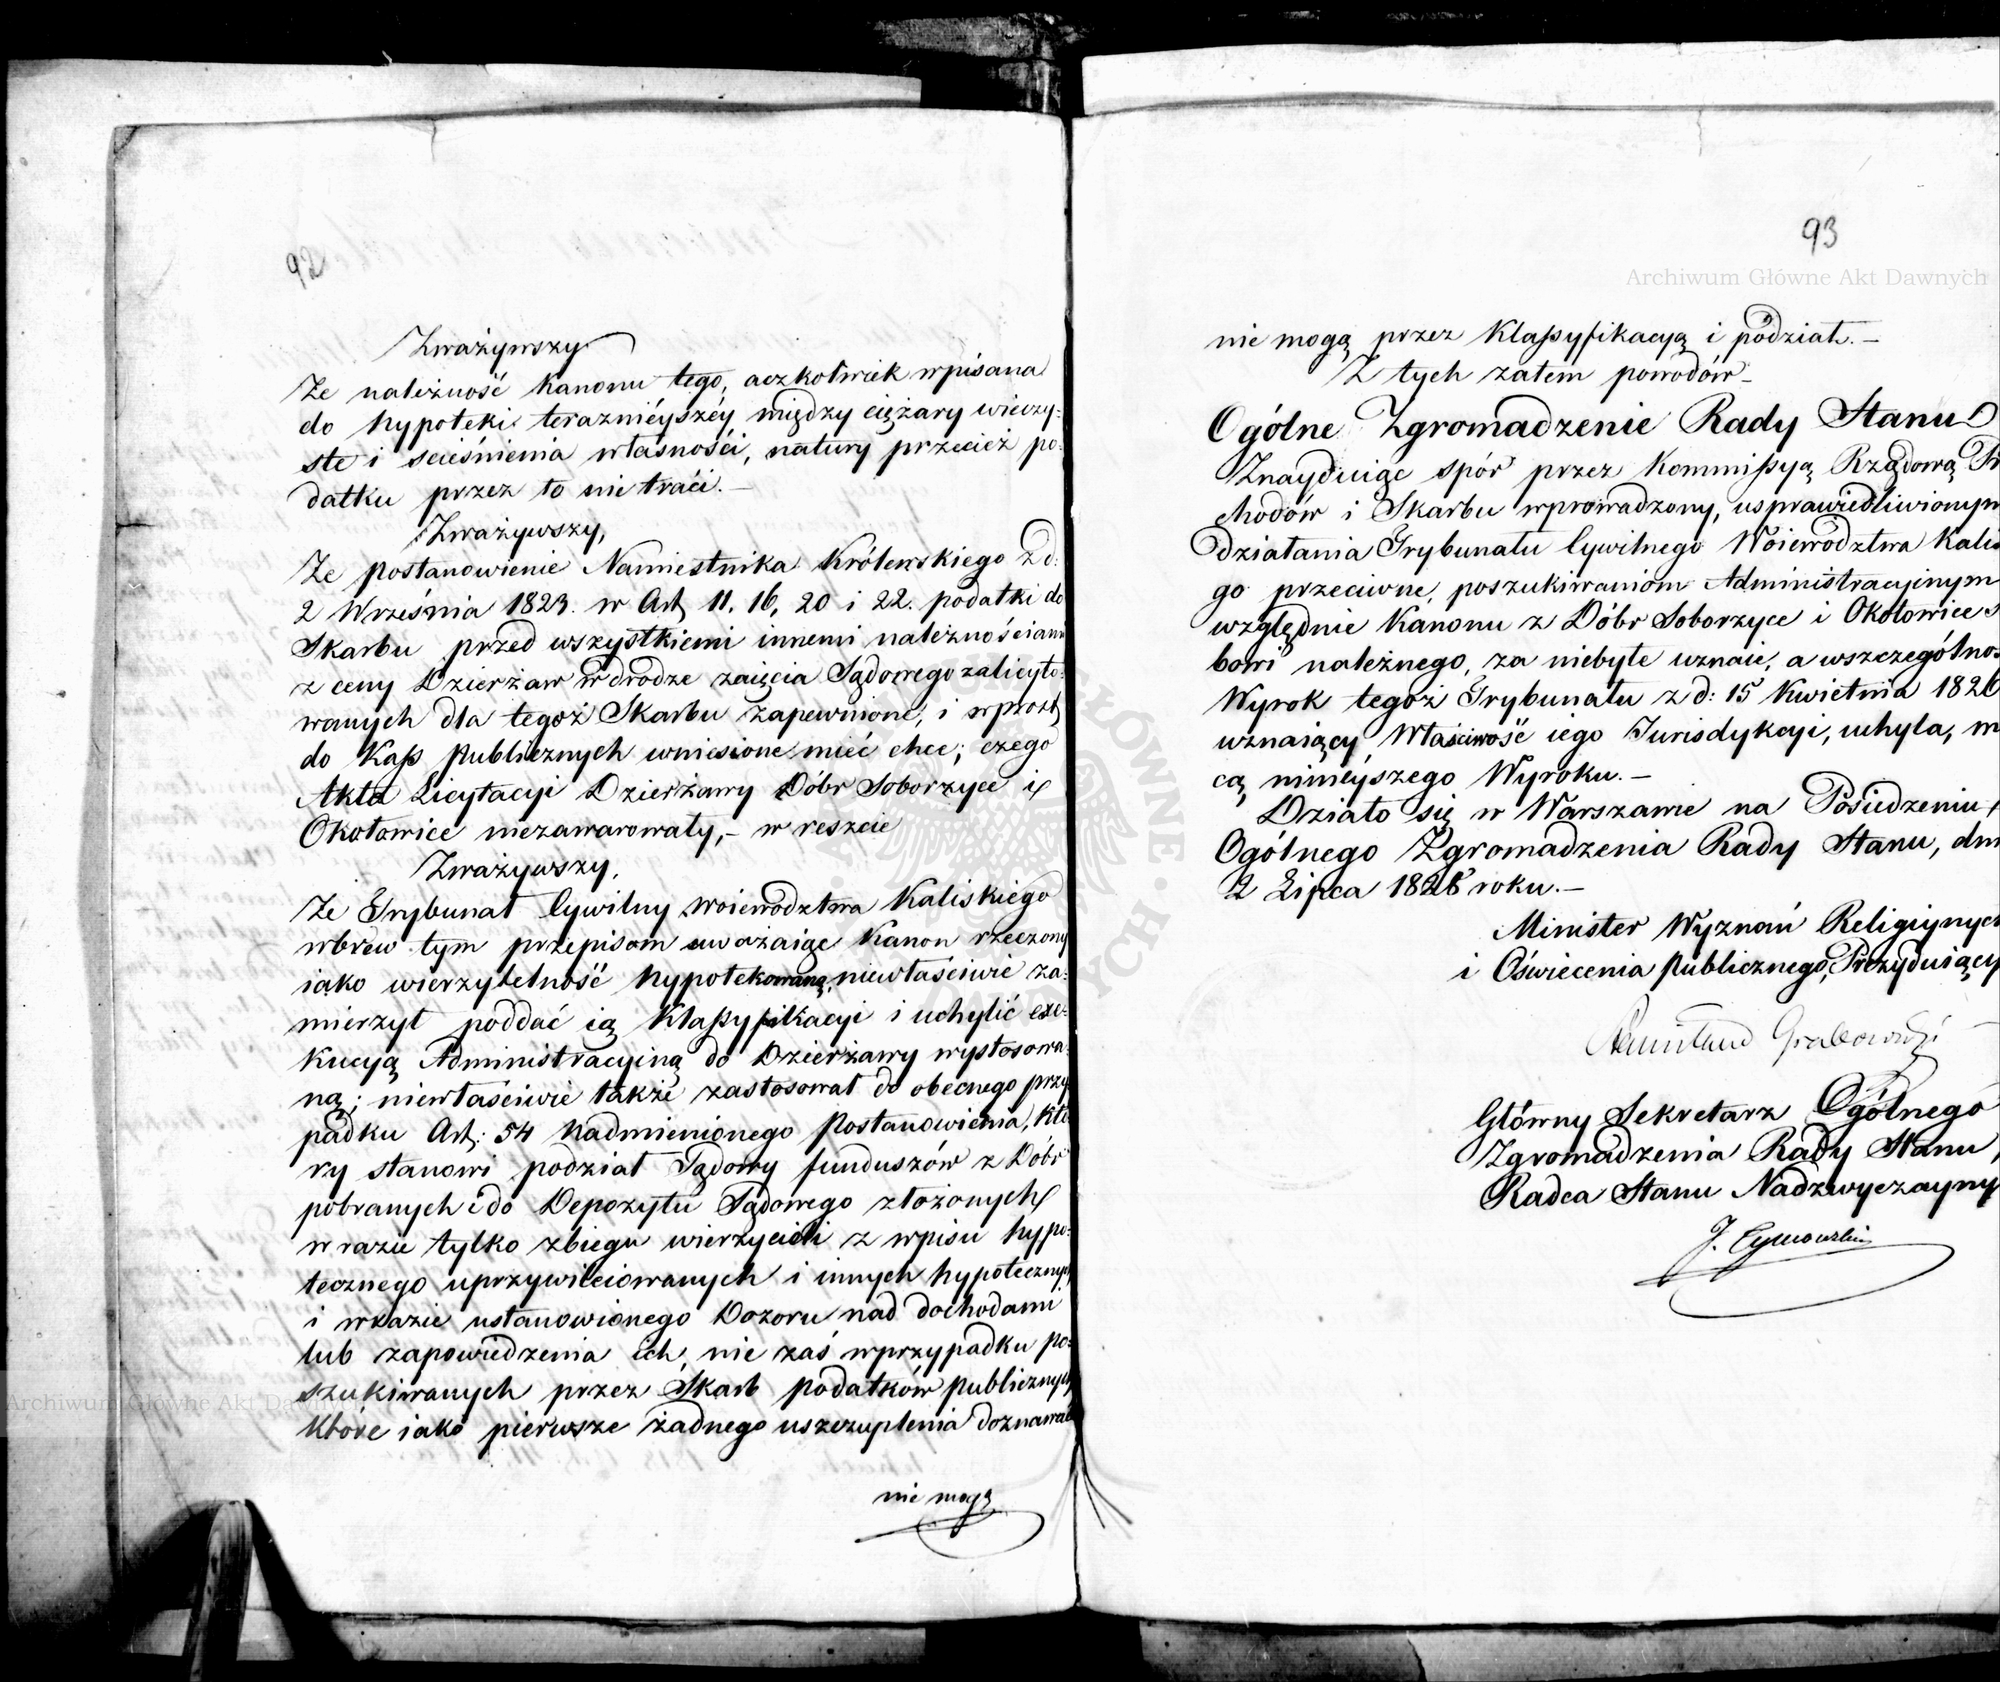 92
Zważywszy
Że należność Kanonu tego, aczkolwiek wpisana
do hypoteki teraznieyszéy między ciężary wieczy-
ste i ścieśnienia własności, natury przecież po-
datku przez to nie traci.—
Zważywszy,
Że postanowienie Namiestnika Królewskiego z d:
2 Września 1823. w Art. 11. 16, 20 i 22. podatki do
Skarbu przed wszystkiemi innemi należnościami
z ceny Dzierżaw w drodze zaięcia Sądowego zalicyto-
wanych dla tegoż Skarbu zapewnione, i wprost
do Kass publicznych wniesione mieć chce; czego
Akta Licytacyi Dzierżawy Dóbr Soborzyce i
Okołowice niezawarowały,— w reszcie
Zważywszy,
Że Trybunał Cywilny Woiewództwa Kaliskiego
wbrew tym przepisom uważaiąc Kanon rzeczony
iako wierzytelność hypotekowaną, niewłaściwie za-
mierzył poddać ią Klassyfikacyi i uchylić exe-
kucyą Administracyiną do Dzierżawy wystosowa-
ną; niewłaściwie także zastosował do obecnego przy
padku Art: 54 Nadmienionego Postanowienia, któ
ry stanowi podział Sądowy funduszów z Dóbr
pobranych i do Depozytu Sądowego złożonych
w razie tylko zbiegu wierzycieli z wpisu hypo-
tecznego uprzywileiowanych i innych hypotecznych
i wrazie ustanowionego Dozoru nad dochodami
lub zapowiedzenia ich, nie zaś wprzypadku po-
szukiwanych przez Skarb podatków publicznych
które iako pierwsze żadnego uszczuplenia doznawać
nie mogą
93
nie mogą przez Klassyfikacyą i podział.—
Z tych zatem powodów—
Ogólne Zgromadzenie Rady Stanu
Znayduiąc spór przez Kommissyą Rządową Pr
chodów i Skarbu wprowadzony, usprawiedliwionym
działania Trybunału Cywilnego Woiewództwa Kalis
go przeciwne, poszukiwaniom Administracyinym
względnie Kanonu z Dóbr Soborzyce i Okołowice S
bowi należnego, za niebyłe uznaie, a wszczególnoś
Wyrok tegoż Trybunału z d: 15 Kwietnia 1826
uznaiący Właściwość iego Jurisdykcyi, uchyla, m
cą ninieyszego Wyroku.—
Działo się w Warszawie na Posiedzeniu
Ogólnego Zgromadzenia Rady Stanu, dni
2 Lipca 1828 roku.—
Minister Wyznań Religiynych
i Oświecenia Publicznego, Prezyduiący
Grabowski
Główny Sekretarz Ogólnego
Zgromadzenia Rady Stanu,
Radca Stanu Nadzwyczayny
J. Tymowski
Archiwum Główne Akt Dawnych
Archiwum Główne Akt Dawnych